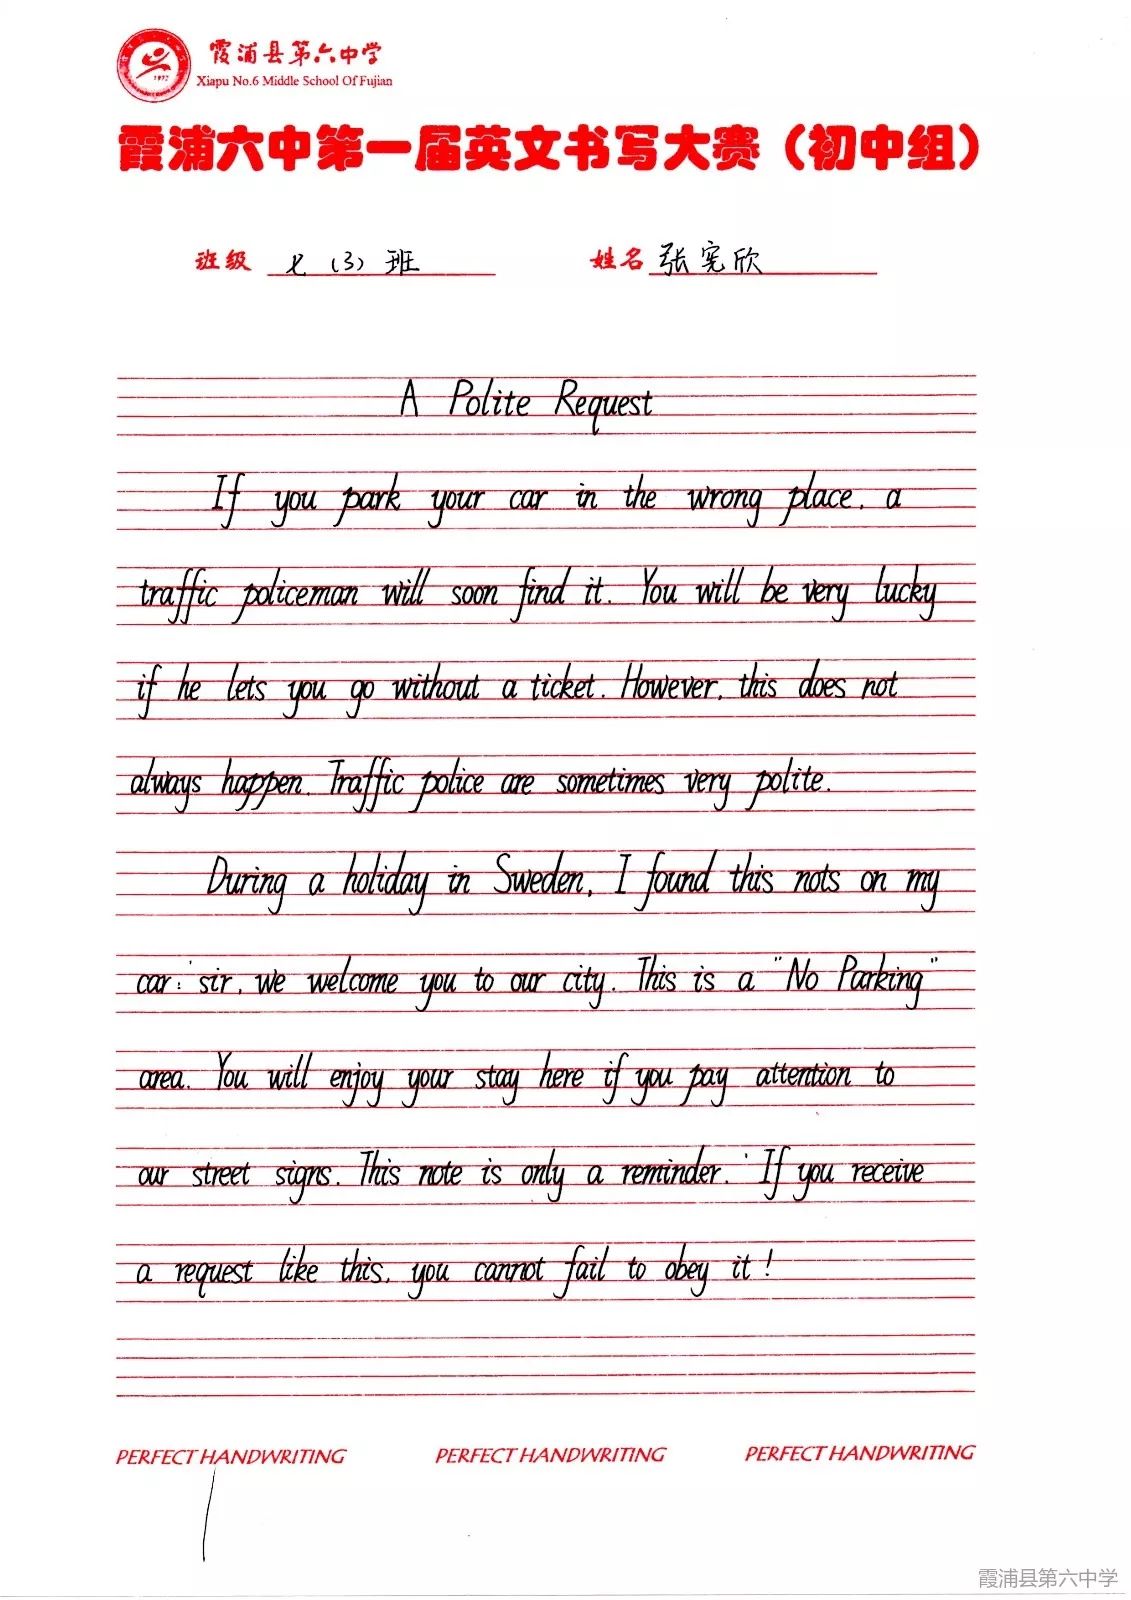 霞浦县第六中学
Xiapu No.6 Middle School Of Fujian
1972
霞浦六中第一届英文书写大赛（初中组）
班级 七（3）班 姓名 张宪欣
A Polite Request
If you park your car in the wrong place. a
traffic policeman will soon find it. You will be very lucky
if he lets you go without a ticket. However, this does not
always happen. Traffic police are sometimes very polite.
During a holiday in Sweden, I found this nots on my
car: 'sir, we welcome you to our city. This is a "No Parking"
area. You will enjoy your stay here if you pay attention to
our street signs. This note is only a reminder.' If you receive
a request like this, you cannot fail to obey it!
PERFECT HANDWRITING PERFECT HANDWRITING PERFECT HANDWRITING
霞浦县第六中学